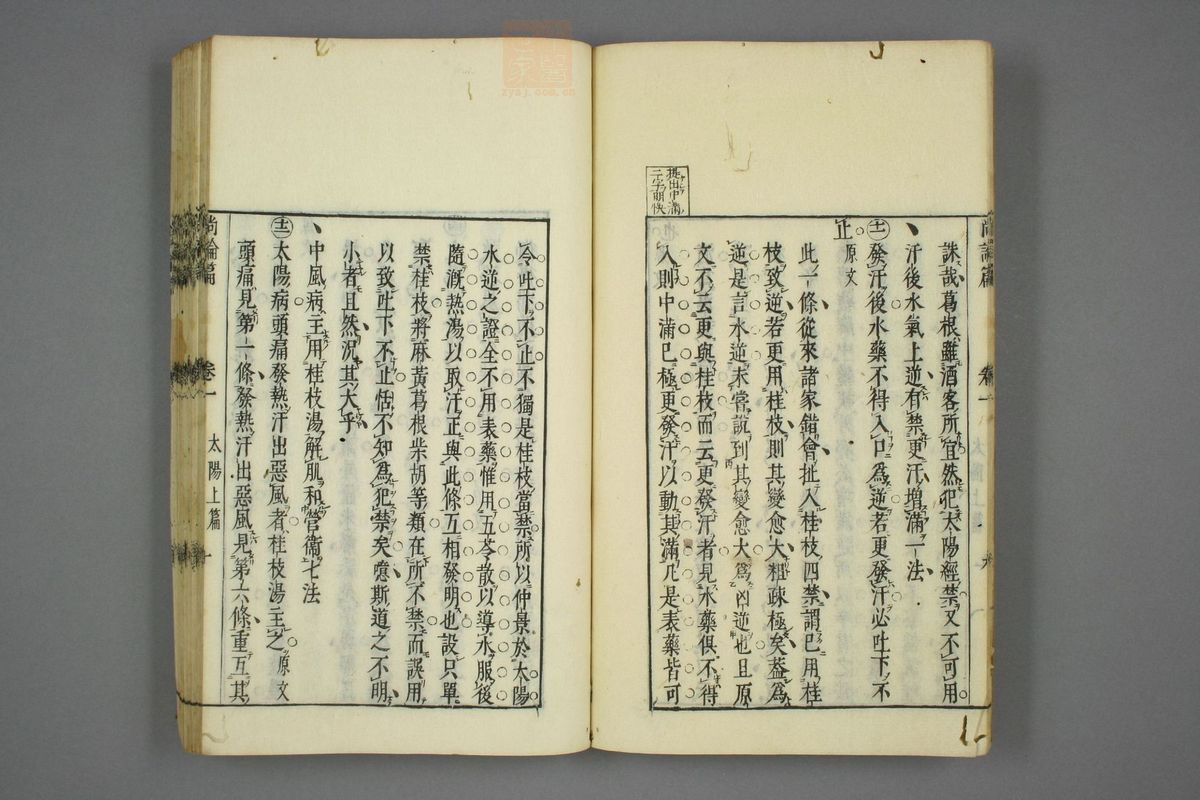 尚論篇
卷一
太陽上篇
提出中滿
二字明快
誅哉葛根雖酒客所宜然犯太陽經禁又不可用
汗後水氣上逆有禁更汗增滿一法
㊉一發汗後水藥不得入口為逆若更發汗必吐下不
止 原文
此一條從來諸家錯會扯入桂枝四禁謂已用桂
枝致逆若更用桂枝則其變愈大粗疎極矣葢為
逆是言水逆未嘗說到其變愈大為凶逆也且原
文不云更與桂枝而云更發汗者見水藥俱不得
入則中滿已極更發汗以動其滿凡是表藥皆可
令吐下不止不獨是桂枝當禁所以仲景於太陽
水逆之證全不用表藥惟用五苓散以導水服後
隨溉熱湯以取汗正與此條互相發明也設只單
禁桂枝將麻黃葛根柴胡等類在所不禁而誤用
以致吐下不止恬不知為犯禁矣噫斯道之不明
小者且然況其大乎
中風病主用桂枝湯解肌和營衞七法
㊉二太陽病頭痛發熱汗出惡風者桂枝湯主之 原文
頭痛見第一條發熱汗出惡風見第六條重互其
尚論篇
卷一
太陽上篇
zysj.com.cn